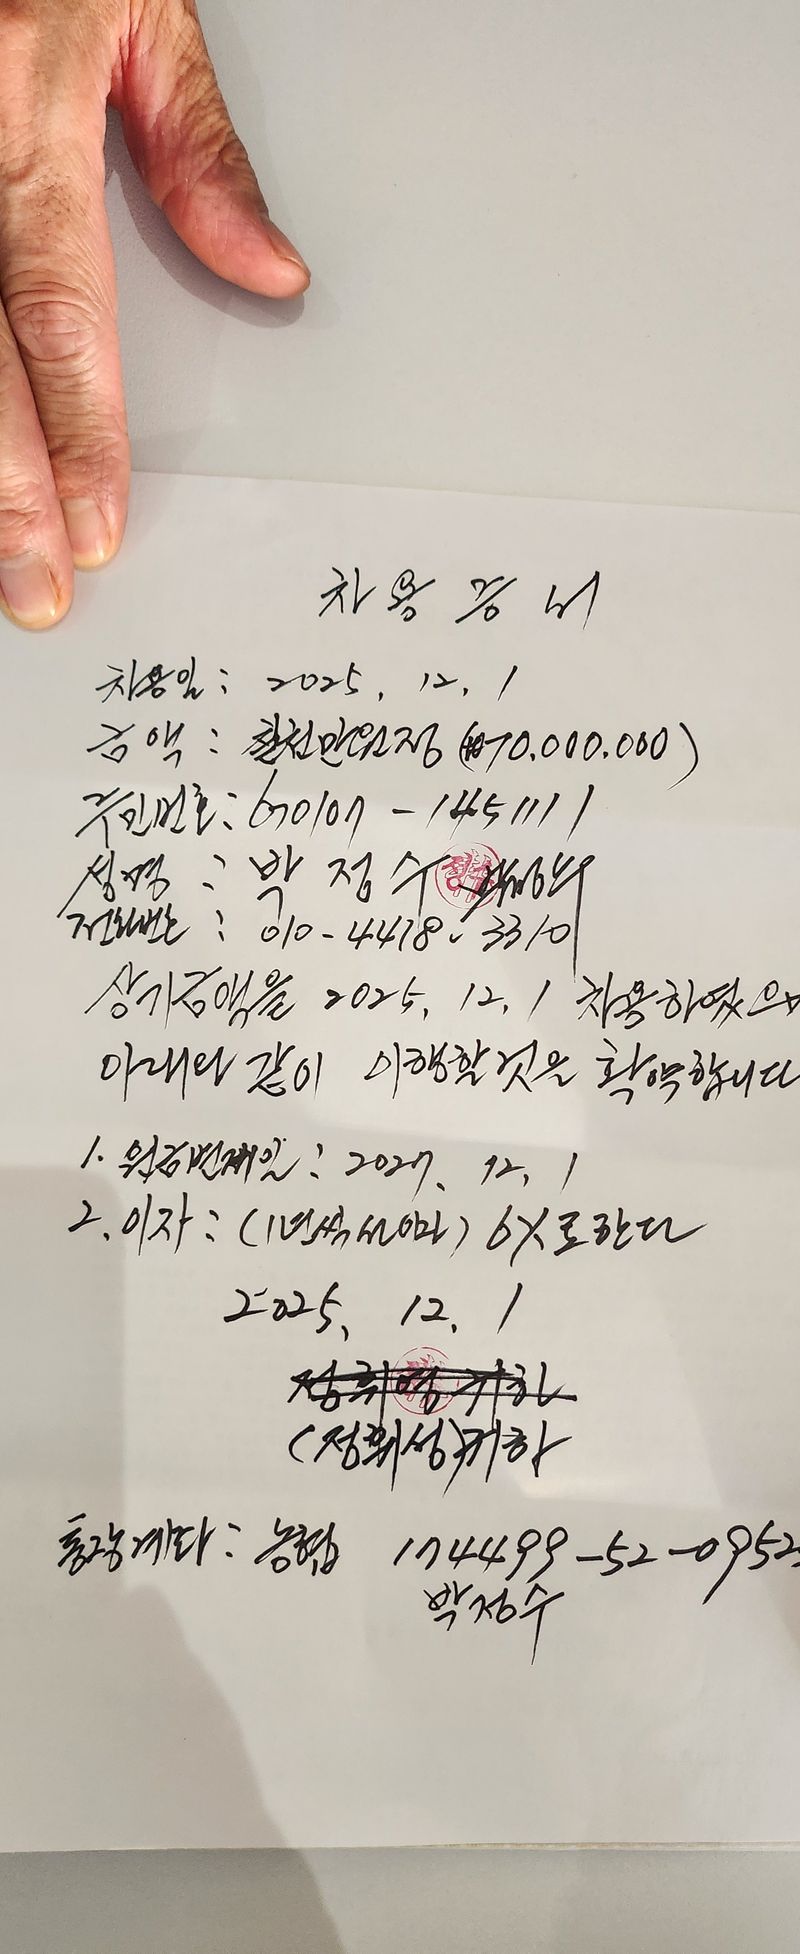 차용증서
차용일: 2025. 12. 1
금액: 칠천만원정 (₩70.000.000)
주민번호: 670107-1451111
성명: 박정수
전화번호: 010-4478-3310
상기금액을 2025. 12. 1 차용하였으며
아래와 같이 이행할것을 확약합니다
1. 원금변제일: 2027. 12. 1
2. 이자: (1년씩 선이자) 6%로한다
2025. 12. 1
정휘영 귀하
(정휘성)귀하
통장계좌: 농협 174499-52-0952
박정수